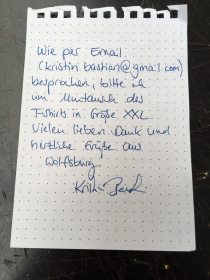 Wie per Email
(kristin.bastian@gmail.com)
besprochen, bitte ich
um Umtausch des
T-Shirts in Größe XXL.
Vielen lieben Dank und
herzliche Grüße aus
Wolfsburg